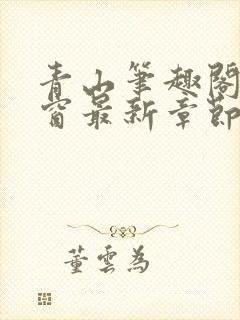 青山筆趣閣
窗最新章節
董雲為